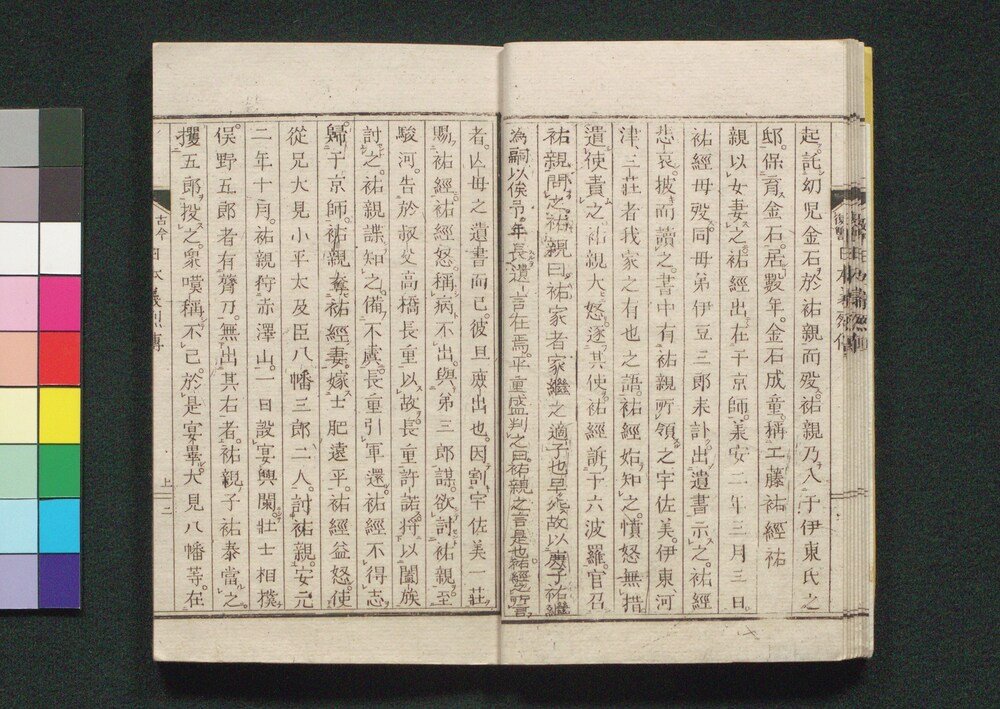 起。託幼児金石於祐親而歿。祐親乃入于伊東氏之
邸。保育金石。居數年。金石成童。稱工藤祐經。祐
親以女妻之。祐經出在于京師。義安二年三月三日。
祐經母歿。同母弟伊豆三郎来訃。出遺書示之。祐經
悲哀。披而讀之。書中有祐親所領之宇佐美。伊東。河
津。三莊者我家之有也之語。祐經始知之。憤怒無措。
遣使責之。祐親大怒。逐其使。祐經訴于六波羅。官召
祐親問之。祐親曰。祐家者家繼之適子也。早歿。故以庶子祐繼
為嗣。以俟吊年長。遺言在焉。平重盛判之曰。祐親之言是也。祐經之所言
者。亡母之遺書而已。彼且庶出也。因割宇佐美一莊
賜祐經。祐經怒。稱病不出。與弟三郎謀。欲討祐親。至
駿河。告於叔父高橋長重以故。長重許諾。将以闔族
討之。祐親諜知之。備不虞。長重引軍還。祐經不得志
歸于京師。祐親奪祐經妻。嫁土肥遠平。祐經益怒。使
從兄大見小平太及臣八幡三郎二人。討祐親。安元
二年十月。祐親狩赤澤山。一日設宴。興闌。壯士相撲。
俣野五郎者有膂力。無出其右者。祐親子祐泰當之。
攫五郎投之。衆嘆稱不已。於是宴畢。大見八幡等。在
古今
日本義烈傳
上
二